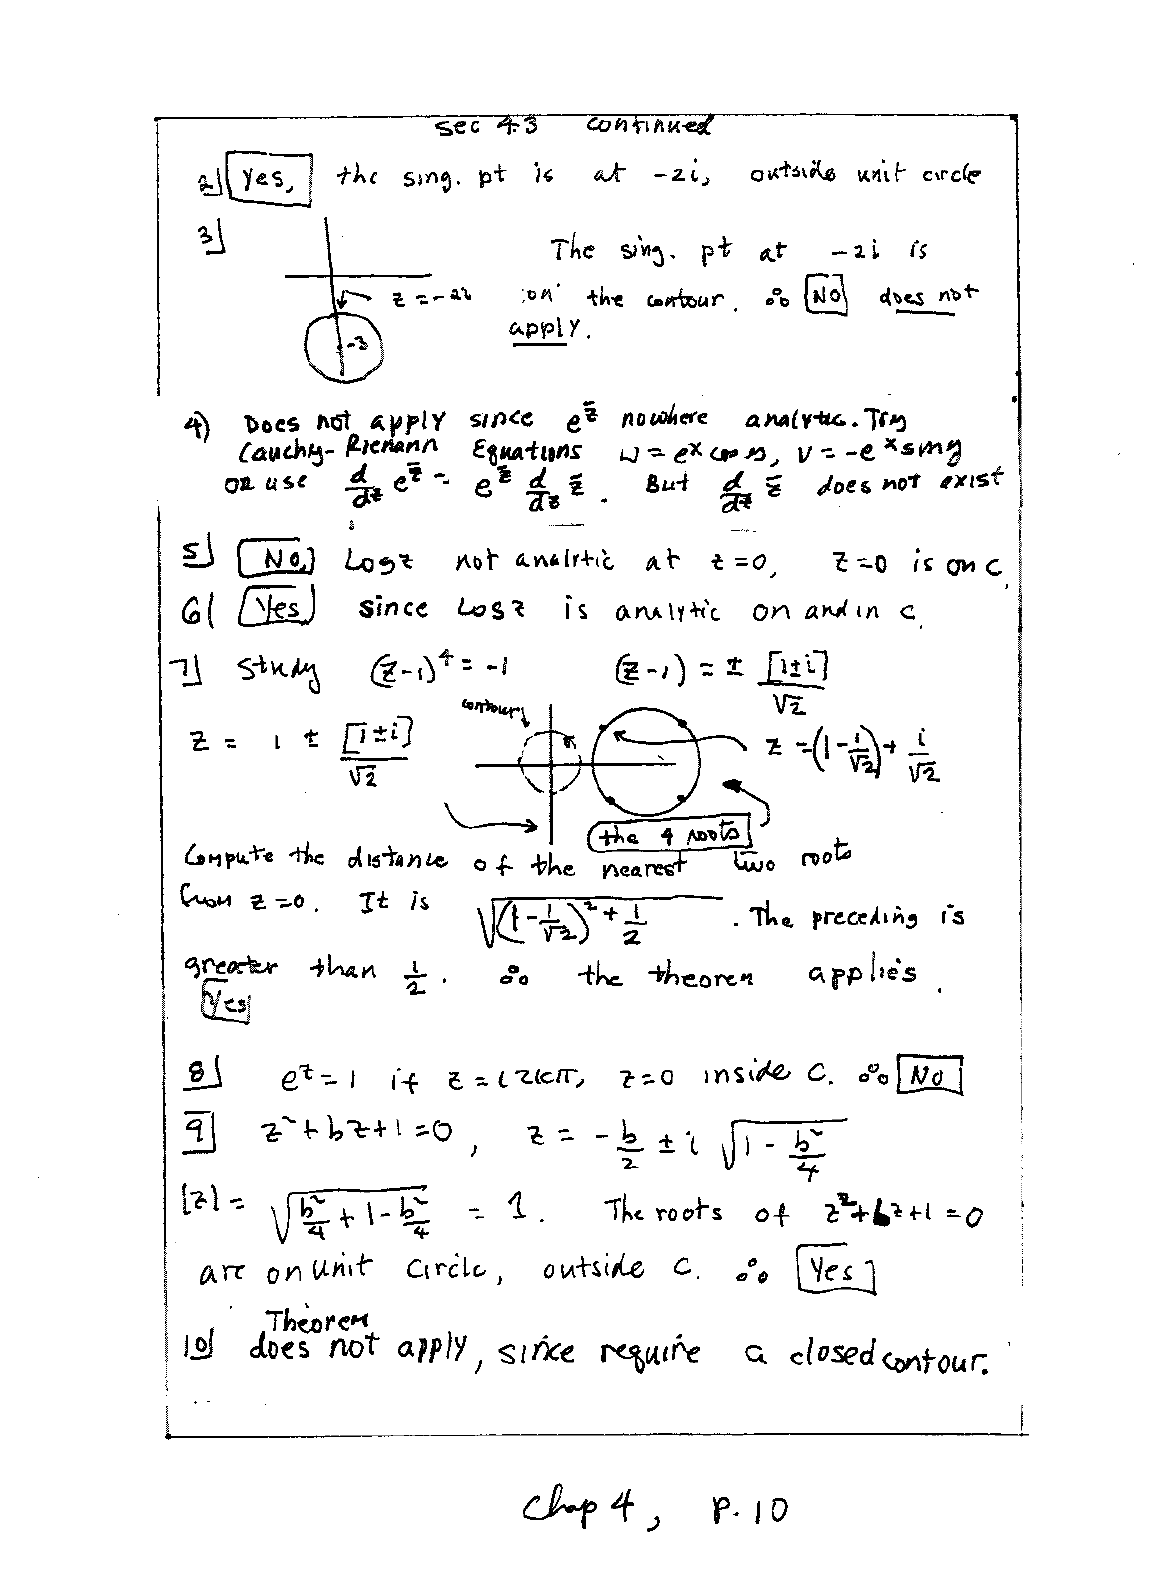 Sec 4.3 continued
2] Yes, the sing. pt is at -2i, outside unit circle
3] The sing. pt at -2i is
z = -2i on the contour. ∴ No does not
-3 apply.
4) Does not apply since e^z̄ nowhere analytic. Try
Cauchy-Riemann Equations u = e^x cos y, v = -e^x sin y
or use d/dz e^z̄ = e^z̄ d/dz z̄. But d/dz z̄ does not exist
5] No, Log z not analytic at z=0, z=0 is on C
6] Yes since Log z is analytic on and in C.
7] Study (z-1)^4 = -1 (z-1) = ± [1±i]/√2
contour
z = 1 ± [1±i]/√2 z = (1 - 1/√2) + i/√2
the 4 roots
Compute the distance of the nearest two roots
from z=0. It is √((1 - 1/√2)² + 1/2) . The preceding is
greater than 1/2. ∴ the theorem applies.
Yes
8] e^z = 1 if z = i2kπ, z=0 inside C. ∴ No
9] z² + bz + 1 = 0, z = -b/2 ± i √(1 - b²/4)
|z| = √(b²/4 + 1 - b²/4) = 1. The roots of z²+bz+1 = 0
are on unit circle, outside C. ∴ Yes
Theorem
10] does not apply, since require a closed contour.
Chap 4, p. 10